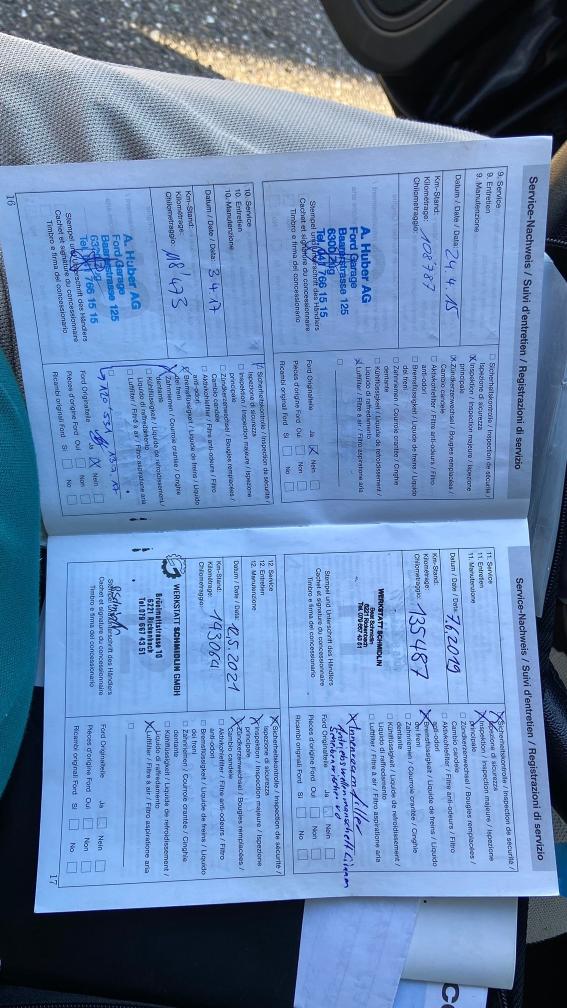 Service-Nachweis / Suivi d'entretien / Registrazioni di servizio
9. Service
9. Entretien
9. Manutenzione
Datum / Date / Data: 24.4.15
Km-Stand:
Kilométrage:
Chilometraggio: 108'787
A. Huber AG
Ford Garage
Baarerstrasse 125
6300 Zug
Tel. 041 766 15 15
Stempel und Unterschrift des Händlers
Cachet et signature du concessionnaire
Timbro e firma del concessionario
Sicherheitskontrolle / Inspection de sécurité /
Ispezione di sicurezza
X Inspektion / Inspection majeure / Ispezione
principale
X Zündkerzenwechsel / Bougies remplacées /
Cambio candele
Aktivkohlefilter / Filtre anti-odeurs / Filtro
anti-odori
Bremsflüssigkeit / Liquide de freins / Liquido
dei freni
Zahnriemen / Courroie crantée / Cinghie
dentante
Kühlflüssigkeit / Liquide de refroidissement /
Liquido di raffredamento
X Luftfilter / Filtre à air / Filtro aspirazione aria
Ford Originalteile Ja X Nein
Pièces d'origine Ford Oui Non
Ricambi originali Ford Si No
10. Service
10. Entretien
10. Manutenzione
Datum / Date / Data: 3.4.17
Km-Stand:
Kilométrage:
Chilometraggio: 118'493
A. Huber AG
Ford Garage
Baarerstrasse 125
6300 Zug
Tel. 041 766 15 15
Stempel und Unterschrift des Händlers
Cachet et signature du concessionnaire
Timbro e firma del concessionario
Sicherheitskontrolle / Inspection de sécurité /
Ispezione di sicurezza
Inspektion / Inspection majeure / Ispezione
principale
Zündkerzenwechsel / Bougies remplacées /
Cambio candele
Aktivkohlefilter / Filtre anti-odeurs / Filtro
anti-odori
X Bremsflüssigkeit / Liquide de freins / Liquido
dei freni
X Zahnriemen / Courroie crantée / Cinghie
dentante
Kühlflüssigkeit / Liquide de refroidissement /
Liquido di raffredamento
Luftfilter / Filtre à air / Filtro aspirazione aria
Ford Originalteile Ja X Nein
Pièces d'origine Ford Oui Non
Ricambi originali Ford Si No
16
Service-Nachweis / Suivi d'entretien / Registrazioni di servizio
11. Service
11. Entretien
11. Manutenzione
Datum / Date / Data: 7.6.2019
Km-Stand:
Kilométrage:
Chilometraggio: 135'487
WERKSTATT SCHMIDLIN
6221 Rickenbach
Tel. 079 667 43 51
Stempel und Unterschrift des Händlers
Cachet et signature du concessionnaire
Timbro e firma del concessionario
X Sicherheitskontrolle / Inspection de sécurité /
Ispezione di sicurezza
X Inspektion / Inspection majeure / Ispezione
principale
Zündkerzenwechsel / Bougies remplacées /
Cambio candele
Aktivkohlefilter / Filtre anti-odeurs / Filtro
anti-odori
X Bremsflüssigkeit / Liquide de freins / Liquido
dei freni
Zahnriemen / Courroie crantée / Cinghie
dentante
Kühlflüssigkeit / Liquide de refroidissement /
Liquido di raffredamento
Luftfilter / Filtre à air / Filtro aspirazione aria
X Innenraumfilter
Ford Originalteile Ja Nein
Pièces d'origine Ford Oui Non
Ricambi originali Ford Si No
12. Service
12. Entretien
12. Manutenzione
Datum / Date / Data: 12.5.2021
Km-Stand:
Kilométrage:
Chilometraggio: 143064
WERKSTATT SCHMIDLIN GMBH
6221 Rickenbach
Tel. 079 667 43 51
Stempel und Unterschrift des Händlers
Cachet et signature du concessionnaire
Timbro e firma del concessionario
X Sicherheitskontrolle / Inspection de sécurité /
Ispezione di sicurezza
X Inspektion / Inspection majeure / Ispezione
principale
X Zündkerzenwechsel / Bougies remplacées /
Cambio candele
Aktivkohlefilter / Filtre anti-odeurs / Filtro
anti-odori
Bremsflüssigkeit / Liquide de freins / Liquido
dei freni
Zahnriemen / Courroie crantée / Cinghie
dentante
Kühlflüssigkeit / Liquide de refroidissement /
Liquido di raffredamento
X Luftfilter / Filtre à air / Filtro aspirazione aria
Ford Originalteile Ja Nein
Pièces d'origine Ford Oui Non
Ricambi originali Ford Si No
17